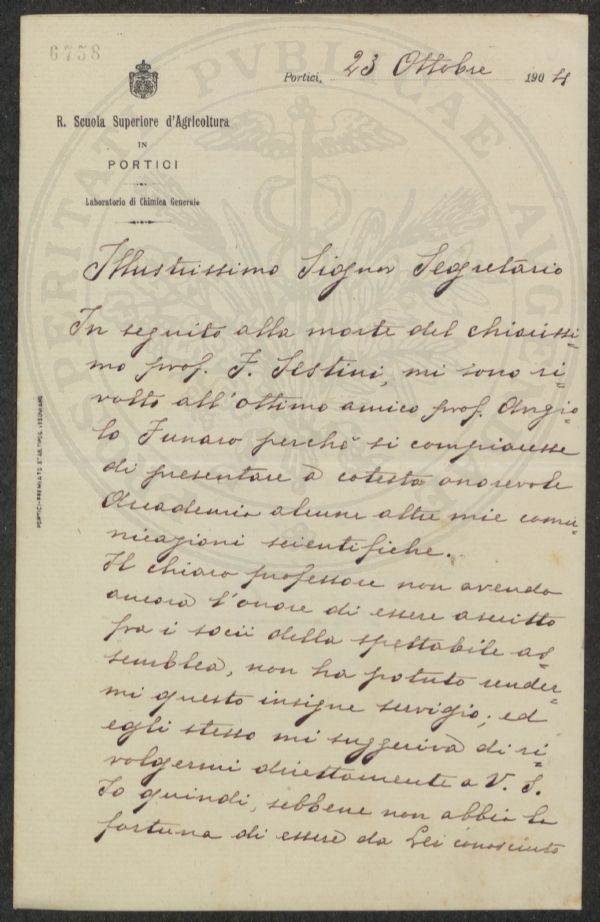 6758
Portici, 23 Ottobre 1904
R. Scuola Superiore d'Agricoltura
IN
PORTICI
Laboratorio di Chimica Generale
PVBLICAE
Illustrissimo Signor Segretario
In seguito alla morte del chiarissi=
mo prof. F. Sestini, mi sono ri=
volto all'ottimo amico prof. Angio=
lo Funaro perchè si compiacesse
di presentare a cotesta onorevole
Accademia alcune altre mie comu=
nicazioni scientifiche.
Il chiaro professore non avendo
ancora l'onore di essere ascritto
fra i socii della spettabile as=
semblea, non ha potuto render=
mi questo insigne servigio; ed
egli stesso mi suggeriva di ri=
volgermi direttamente a V. S.
Io quindi, sebbene non abbia la
fortuna di essere da Lei conosciuto